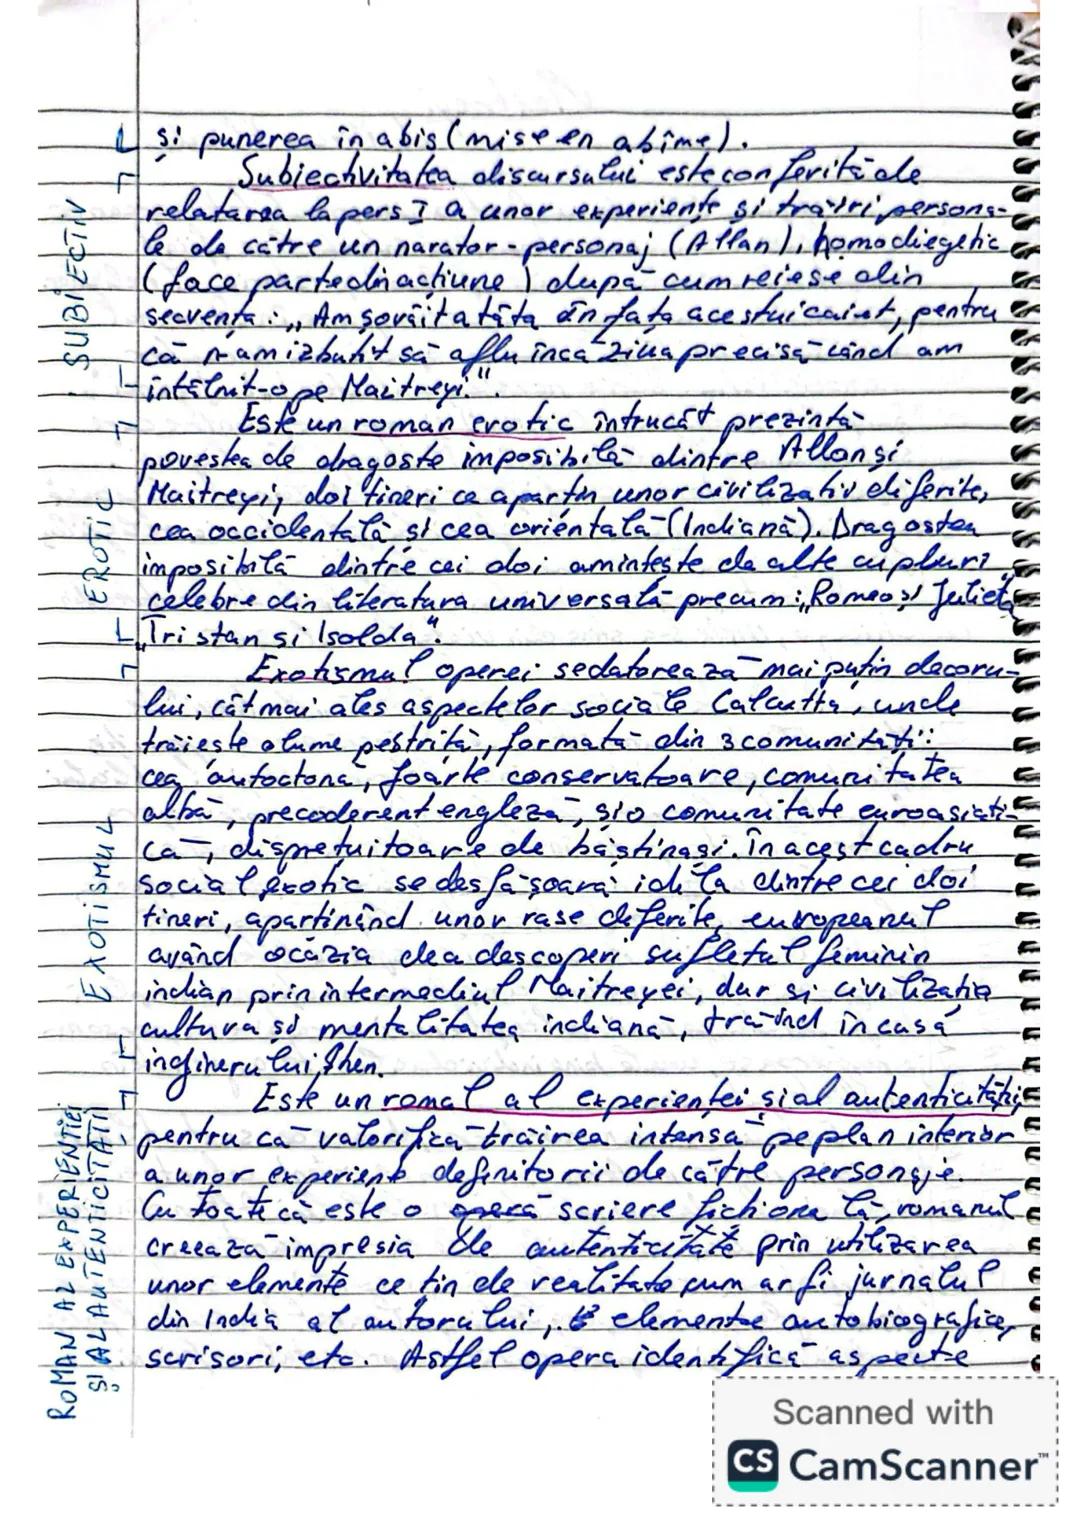 și punerea în abis (mise en abîme).
Subiectivitatea discursului este conferită de
relatarea la pers I a unor experiențe și trăiri persona-
le de către un narator-personaj (Allan), homodiegetic
(face parte din acțiune) după cum reiese din
secvența: „Am șovăit atâta în fața acestui caiet, pentru
că n-am izbutit să aflu încă ziua precisă când am
întâlnit-o pe Maitreyi."
Este un roman erotic întrucât prezintă
povestea de dragoste imposibilă dintre Allan și
Maitreyi, doi tineri ce aparțin unor civilizații diferite,
cea occidentală și cea orientală (Indiană). Dragostea
imposibilă dintre cei doi amintește de alte cupluri
celebre din literatura universală precum: „Romeo și Julieta",
„Tristan și Isolda".
Exotismul operei se datorează mai puțin decoru-
lui, cât mai ales aspectelor sociale Calcutta, unde
trăiește o lume pestriță, formată din 3 comunități:
cea autoctonă, foarte conservatoare, comunitatea
albă, precoderent engleză, și o comunitate euroasiati-
că, disprețuitoare de băștinași. În acest cadru
social exotic se desfășoară idila dintre cei doi
tineri, aparținând unor rase diferite, europeanul
având ocazia de a descoperi sufletul feminin
indian prin intermediul Maitreyei, dar și civilizația
cultura și mentalitatea indiană, trăind în casa
inginerului Shen.
Este un romal al experienței și al autenticității,
pentru că valorifică trăirea intensă pe plan interior
a unor experiențe definitorii de către personaje.
Cu toate că este o operă scriere ficțională, romanul
creează impresia de autenticitate prin utilizarea
unor elemente ce țin de realitate cum ar fi jurnalul
din India al autorului, elemente autobiografice,
scrisori, etc. Astfel opera identifică aspecte
SUBIECTIV
EROTIC
EXOTISMUL
ROMAN AL EXPERIENȚEI
ȘI AL AUTENTICITĂȚII
Scanned with
CS CamScanner™